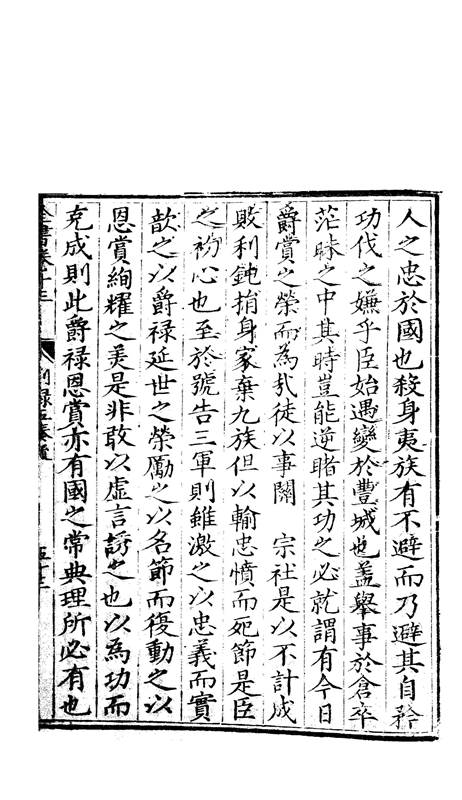 人之忠於國也殺身夷族有不避而乃避其自矜
功伐之嫌乎臣始遇變於豐城也盖舉事於倉卒
茫昧之中其時豈能逆睹其功之必就謂有今日
爵賞之榮而為㢤徒以事關　宗社是以不計成
敗利鈍捐身家棄九族但以輸忠憤而死節是臣
之初心也至於號告三軍則雖激之以忠義而實
歆之以爵禄延世之榮勵之以名節而復動之以
恩賞絢耀之美是非敢以虚言誘之也以為功而
克成則此爵禄恩賞亦有國之常典理所必有也
全書卷十三
别録五奏疏
五十三